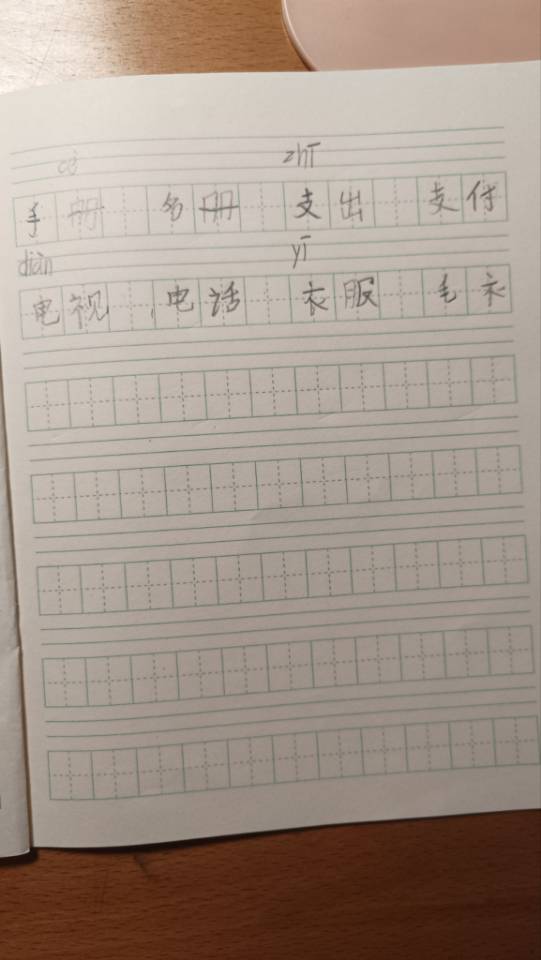 cè zhī
手册 名册 支出 支付
diàn yī
电视 电话 衣服 毛衣